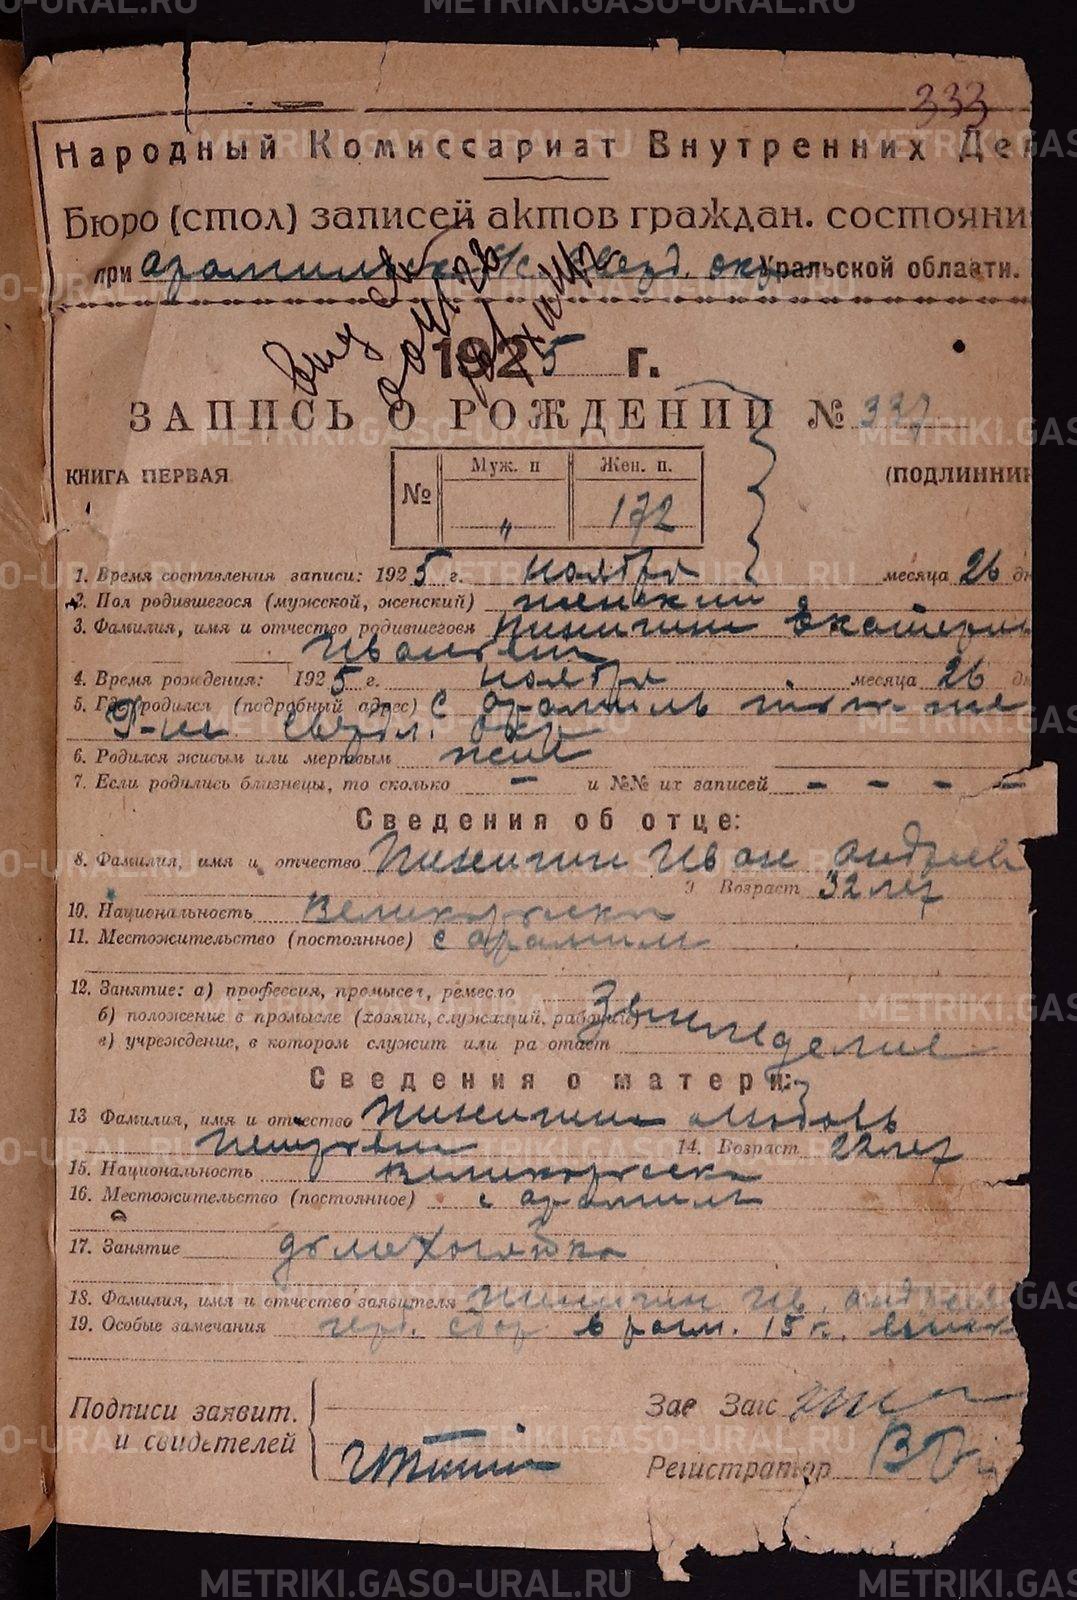 333
Народный Комиссариат Внутренних Дел
Бюро (стол) записей актов граждан. состояни
при Арамильск Уральской области.
1925 г.
ЗАПИСЬ О РОЖДЕНИИ № 337
КНИГА ПЕРВАЯ (ПОДЛИННИК
№ Муж. п Жен. п.
" 172
1. Время составления записи: 1925 г. ноября месяца 26 дн
2. Пол родившегося (мужской, женский) женский
3. Фамилия, имя и отчество родившегося Екатерин
Ивановна
4. Время рождения: 1925 г. ноября месяца 26 дн
5. Где родился (подробный адрес) с Арамиль того же
Р-на Свердл. окр
6. Родился живым или мертвым жив
7. Если родились близнецы, то сколько - и №№ их записей - - - -
Сведения об отце:
8. Фамилия, имя и отчество Иван Андреев
9 Возраст 32 лет
10. Национальность Великорусска
11. Местожительство (постоянное) с Арамиль
12. Занятие: а) профессия, промысел, ремесло
б) положение в промысле (хозяин, служащий, рабочий)
в) учреждение, в котором служит или ра отает
Земледелие
Сведения о матери:
13 Фамилия, имя и отчество Любовь
Петровна 14. Возраст 22 лет
15. Национальность Великорусска
16. Местожительство (постоянное) с Арамиль
17. Занятие домохозяйка
18. Фамилия, имя и отчество заявителя Ив. Андреев
19. Особые замечания герб. сбор в разм. 15 к. взыск
Подписи заявит. Зав Загс
и свидетелей
Регистратор
METRIKI.GASO-URAL.RU